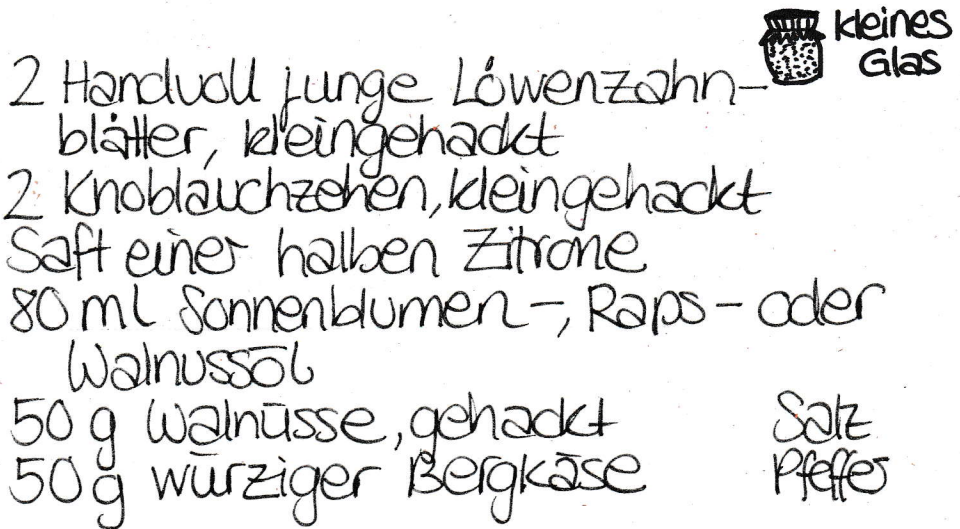 kleines
Glas
2 Handvoll junge Löwenzahn-
blätter, kleingehackt
2 Knoblauchzehen, kleingehackt
Saft einer halben Zitrone
80 ml Sonnenblumen-, Raps- oder
Walnussöl
50 g Walnüsse, gehackt Salz
50 g würziger Bergkäse Pfeffer